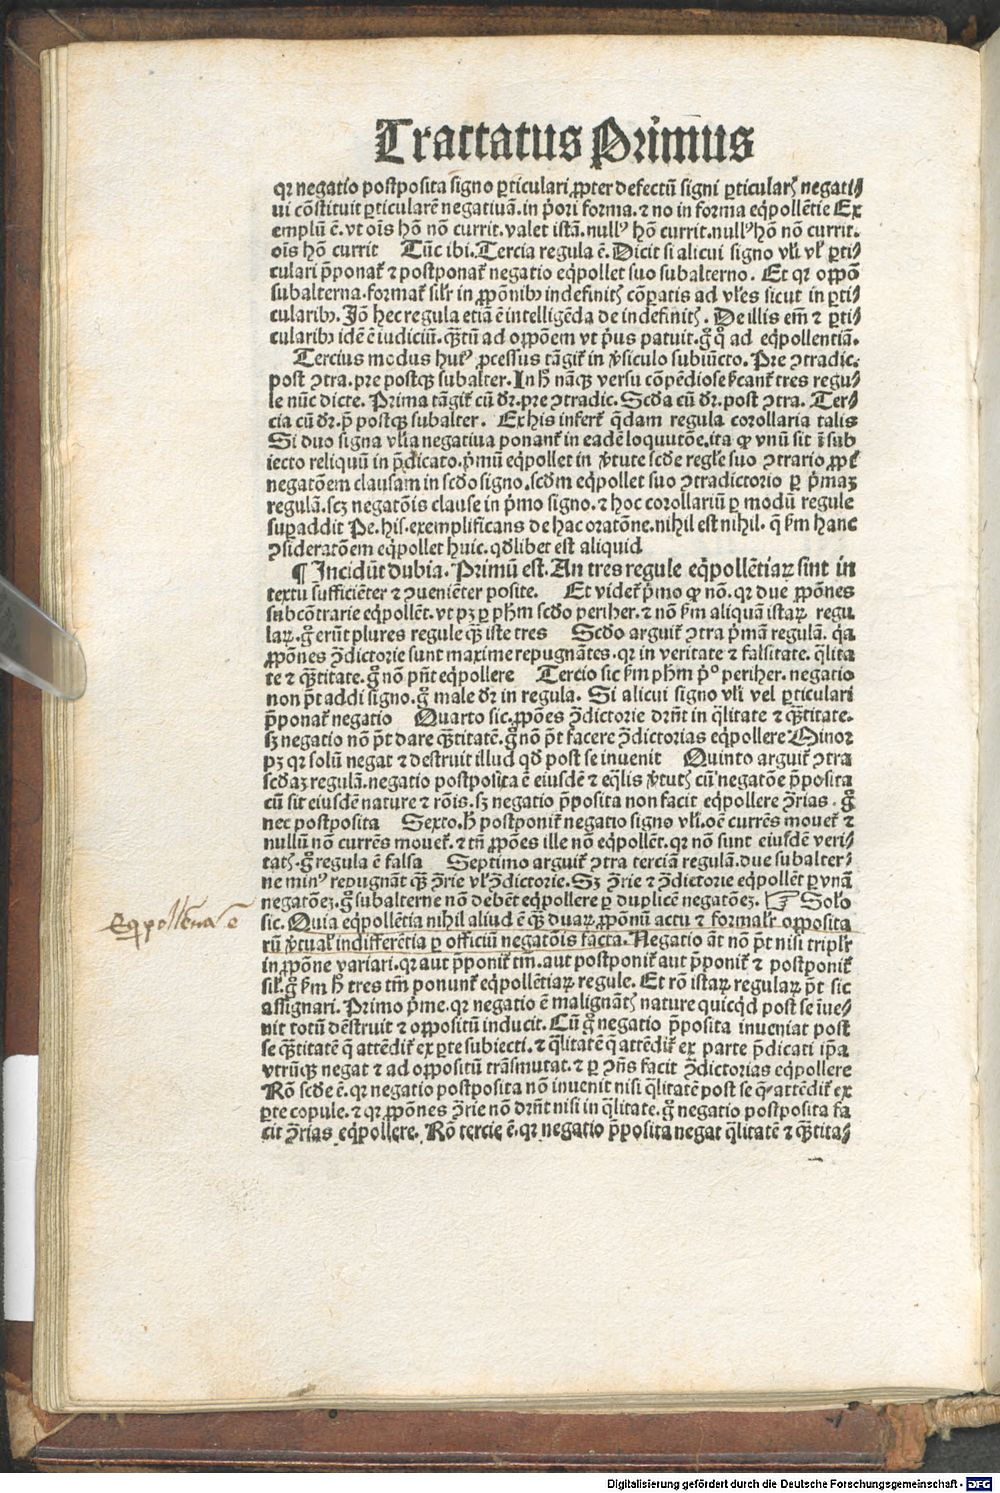 Tractatus Primus
qꝛ negatio postposita signo ꝑticulari ꝓpter defectū signi ꝑticularꝭ negati⸗
ui cōstituit ꝑticularē negatiuā. in p̄ori forma. ⁊ no in forma eq̄pollētie Ex
emplū ē. vt oīs hō nō currit. valet istā. nullꝰ hō currit. nullꝰ hōn nō currit.
oīs hō currit Tūc ibi. Tercia regula ē. Dicit si alicui signo vłi vł ꝑti⸗
culari p̄ponat᷑ ⁊ postponat᷑ negatio eq̄pollet suo subalterno. Et qꝛ oꝓpō
subalterna. format᷑ silr̄ in ꝓpōnibꝫ indefinitꝭ cōparatis ad vłes sicut in ꝑti⸗
cularibꝫ. Jō hec regula etiā ē intelligēda de indefinitꝭ. De illis em̄ ⁊ ꝑti⸗
cularibꝫ idē ē iudiciū. q̄ꝫtū ad oꝓpōem vt p̄us patuit. g̊ q̊ ad eq̄pollentiā.
Tercius modus huiꝰ ꝓcessus tāgit᷑ in v̄siculo subiūcto. Pre ꝯtradic.
post ꝯtra. pre postqꝫ subalter. In h̄ nāqꝫ versu cōpēdiose ẜcant᷑ tres regu⸗
le nūc dicte. Prima tāgit᷑ cū dr̄. pre ꝯtradic. Scd̄a cū dr̄. post ꝯtra. Ter⸗
cia cū dr̄. p̄ postqꝫ subalter. Ex his infert᷑ q̄dam regula corollaria talis
Si duo signa vłia negatiua ponant᷑ in eadē loquutōe. ita ꝙ vnū sit ī sub
iecto reliquū in p̄dicato. p̄mū eq̄pollet in v̄tute scd̄e regłe suo ꝯtrario ꝓpt᷑
negatōem clausam in scd̄o signo. scd̄m eq̄pollet suo ꝯtradictorio ꝑ p̄maꝫ
regulā. scꝫ negatōis clause in p̄mo signo. ⁊ hoc corollariū ꝑ modū regule
suꝑaddit Pe. his. exemplificans de hac oratōne. nihil est nihil. q̄ ẜm hanc
ꝯsideratōem eq̄pollet huic. qd̄libet est aliquid
¶ Incidūt dubia. Primū est. An tres regule eq̄pollētiaꝝ sint in
textu sufficiēter ⁊ ꝯueniēter posite. Et videt᷑ p̄mo ꝙ nō. qꝛ due ꝓpōnes
subcōtrarie eq̄pollēt. vt pꝫ ꝑ pħm scd̄o periher. ⁊ nō ẜm aliquā istaꝝ regu
laꝝ. g̊ erūt plures regule q̄ꝫ iste tres Scd̄o arguit᷑ ꝯtra p̄mā regulā. q̇a
ꝓpōnes ꝯ̄dictorie sunt maxime repugnātes. qꝛ in veritate ⁊ falsitate. q̄lita
te ⁊ q̄ꝫtitate. g̊ nō pn̄t eq̄pollere Tercio sic ẜm pħm p̄º periher. negatio
non pt̄ addi signo. g̊ male dr̄ in regula. Si alicui signo vłi vel ꝑticulari
p̄ponat᷑ negatio Quarto sic. ꝓpōes ꝯ̄dictorie drn̄t in q̄litate ⁊ q̄ꝫtitate.
sꝫ negatio nō pt̄ dare q̄ꝫtitatē. g̊ nō pt̄ facere ꝯ̄dictorias eq̄pollere Minor
pꝫ qꝛ solū negat ⁊ destruit illud qd̄ post se inuenit Quinto arguit᷑ ꝯtra
scd̄aꝫ regulā. negatio postposita ē eiusdē ⁊ eq̄lis v̄tutꝭ cū negatōe p̄posita
cū sit eiusdē nature ⁊ rōis. sꝫ negatio p̄posita non facit eq̄pollere ꝯ̄rias. g̊
nec postposita Sexto. h̄ postponit᷑ negatio signo vłi. oē currēs mouet᷑ ⁊
nullū nō currēs mouet᷑. ⁊ tn̄ ꝓpōes ille nō eq̄pollēt. qꝛ nō sunt eiusdē veri⸗
tatꝭ. g̊ regula ē falsa Septimo arguit᷑ ꝯtra terciā regulā. due subalter⸗
ne minꝰ repugnāt q̄ꝫ ꝯ̄rie vł ꝯ̄dictorie. Sꝫ ꝯ̄rie ⁊ ꝯ̄dictorie eq̄pollēt ꝑ vnā
negatōeꝫ. g̊ subalterne nō debēt eq̄pollere ꝑ duplicē negatōeꝫ. ☞ Solo
Eq̄pollēntia ē
sic. Quia eq̄pollētia nihil aliud ē q̄ꝫ duaꝝ ꝓpōnū actu ⁊ formalr̄ oꝓposita
rū v̄tual᷑ indifferētia ꝑ officiū negatōis facta. Negatio aūt nō pt̄ nisi triplr̄
in ꝓpōne variari. qꝛ aut p̄ponit᷑ tm̄. aut postponit᷑ aut p̄ponit᷑ ⁊ postponit᷑
sil᷑. g̊ ẜm h̄ tres tm̄ ponunt᷑ eq̄pollētiaꝝ regule. Et rō istaꝝ regulaꝝ pt̄ sic
assignari. Primo p̄me. qꝛ negatio ē malignātꝭ nature quicq̄d post se īue⸗
nit totū dēstruit ⁊ oꝓpositū inducit. Cū g̊ negatio p̄posita inueniat post
se q̄ꝫtitatē q̄ attēdit᷑ ex ꝑte subiecti. ⁊ q̄litatē q̄ attēdit᷑ ex parte p̄dicati ip̄a
vtrūqꝫ negat ⁊ ad oꝓpositū trāsmutat. ⁊ ꝑ ꝯn̄s facit ꝯ̄dictorias eq̄pollere
Rō scd̄e ē. qꝛ negatio postposita nō inuenit nisi q̄litatē post se q̄ attēdit᷑ ex
ꝑte copule. ⁊ qꝛ ꝓpōnes ꝯ̄rie nō drn̄t nisi in q̄litate. g̊ negatio postposita fa
cit ꝯ̄rias eq̄pollere. Rō tercie ē. qꝛ negatio p̄posita negat q̄litatē ⁊ q̄ꝫtita⸗
Digitalisierung gefördert durch die Deutsche Forschungsgemeinschaft - DFG